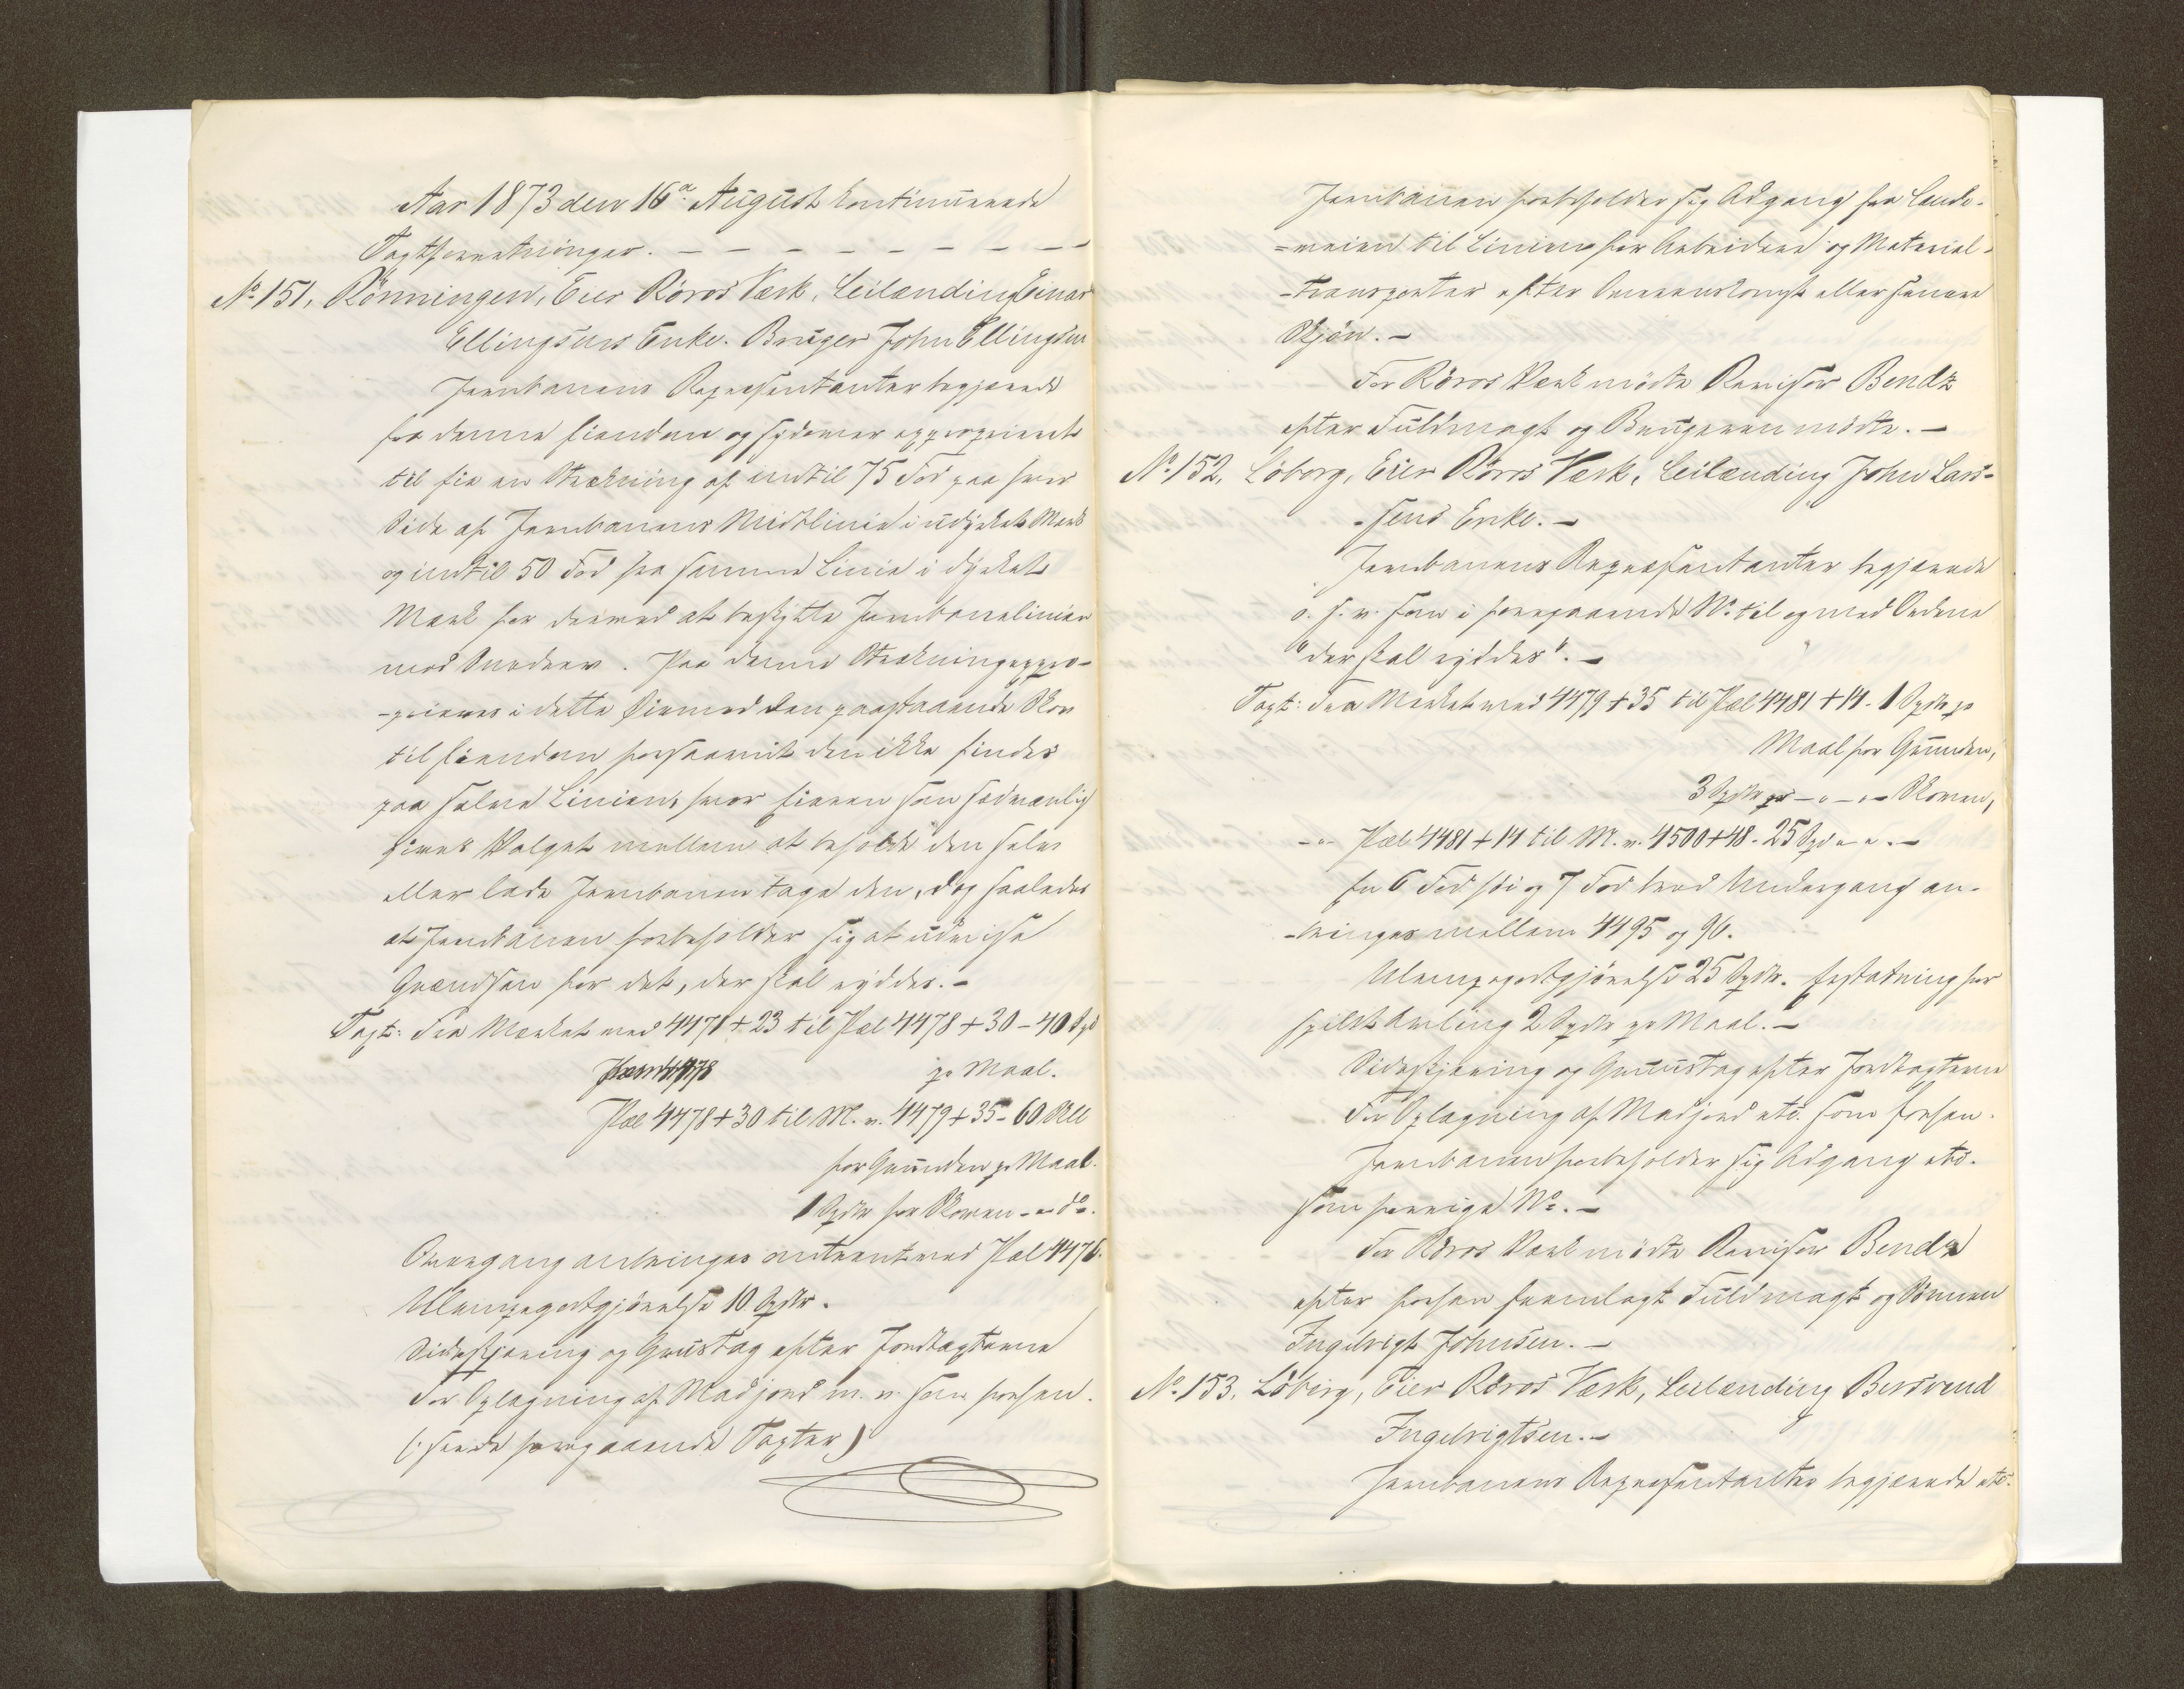 Aar 1873 den 16de August kontinuerede
Taxtforretninger. — — — — — — — — —
No 151. Rönningen, Eier Röros Værk, Leilænding Einar
Ellingsens Enke. Bruger John Ellingsen
Jernbanens Repræsentanter begjærede
fra denne Eiendom og sydover exproprieret
til fie en Strækning af indtil 75 Fod paa hver
Side af Jernbanens Midtlinie i udyrket Mark
og indtil 50 Fod fra samme Linie i dyrket
Mark for derved at beskytte Jernbanelinien
mod Snedrev. Paa denne Strækning expro-
-prieres i dette Øiemed den paastaaende Skov
til Eiendom forsaavidt den ikke findes
paa selve Linien, hvor Eieren som sædvanlig
gives Valget mellem at beholde den selv
eller lade Jernbanen tage den, dog saaledes
at Jernbanen forbeholder sig at udvise
Grændsen for det, der skal ryddes. –
Taxt: Fra Mærket ved 4471 + 23 til Pæl 4478 + 30 – 40 Spd
pr Maal.
Pæl 4478 + 30 til M. v. 4479 + 35 – 60 Skll
for Grunden pr Maal.
1 Spdlr for Skoven - " do.
Overgang anbringes omtrent ved Pæl 4476.
Ulempegodtgjörelse 10 Spdlr.
Sideskjæring og Grustag efter Jordtaxterne
For Oplægning af Madjord m. v. som forhen.
(: see de foregaaende Taxter)
Jernbanen forbeholder sig Adgang fra Lande-
=veien til Linien for Arbeidere og Material-
-transporter efter Overenskomst eller senere
Skjön. –
For Röros Værk mödte Revisor Bendz
efter Fuldmagt og Brugeren mödte. –
No 152. Löberg, Eier Röros Værk, Leilænding John Lars-
-sens Enke. –
Jernbanens Repræsentanter begjærede
o. s. v. som i foregaaende No til og med Ordene
"der skal ryddes". –
Taxt: Fra Mærket ved 4479 + 35 til Pæl 4481 + 14 - 1 Spdlr pr
Maal for Grunden,
3 Spdlr pr – " – " – Skoven,
- " - Pæl 4481 + 14 til M. v. 4500 + 48 - 25 Spd " " . –
En 6 Fod höi og 7 Fod bred Undergang an-
-bringes mellem 4495 og 96.
Ulempegodtgjörelse 25 Spdlr. Erstatning for
spildt Avling 2 Spdlr pr Maal. –
Sideskjæring og Grustag efter Jordtaxterne
For Oplægning af Madjord etc. som forhen.
Jernbanen forbeholder sig Adgang etc.
som forrige No. –
For Röros Værk mödte Revisor Bendz
efter forhen fremlagt Fuldmagt og Sönnen
Ingebrigt Johnsen. –
No 153. Löberg, Eier Röros Værk, Leilænding Bersvend
Ingebrigtsen. –
Jernbanens Repræsentanter begjærede etc.